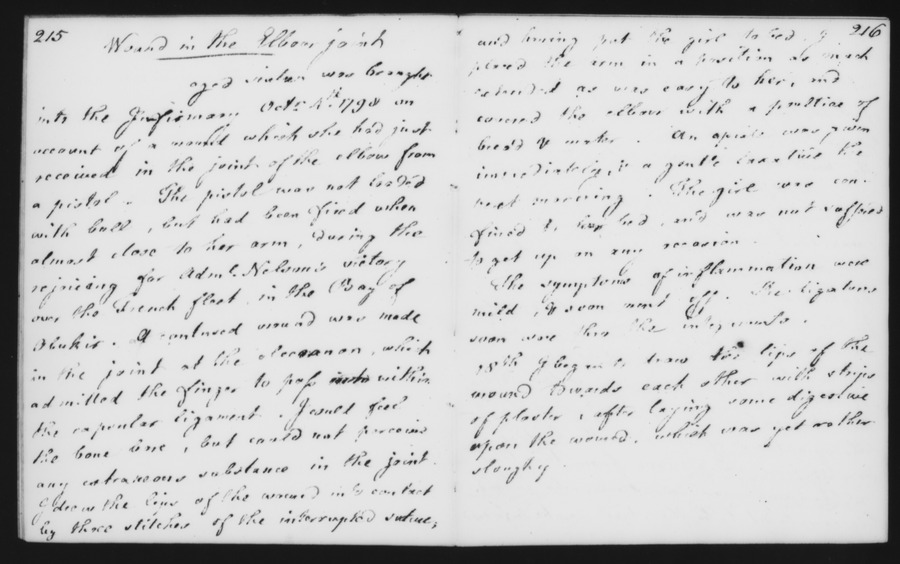 215
Wound in the Elbow joint
aged sixteen was brought
into the Infirmary Octr 4th 1798 on
account of a wound which she had just
received in the joint of the elbow from
a pistol. The pistol was not loaded
with ball, but had been fired when
almost close to her arm, during the
rejoicing for Adml. Nelson's victory
over the French fleet in the Bay of
Abukir. A contused wound was made
in the joint at the olecranon, which
admitted the finger to pass within
the capsular ligament. I could feel
the bone bare, but could not perceive
any extraneous substance in the joint.
I drew the lips of the wound into contact
by three stitches of the interrupted suture,
216
and having put the girl to bed, I
placed the arm in a position as much
extended as was easy to her, and
covered the elbow with a poultice of
bread & water. An opiate was given
immediately, & a gentle laxative the
next morning. The girl was con-
fined to her bed, and was not suffered
to get up on any occasion.
The symptoms of inflammation were
mild, & soon went off. The ligatures
soon wore thro the integuments.
18th I began to draw the lips of the
wound towards each other with strips
of plaster, after laying some digestive
upon the wound, which was yet rather
sloughy.